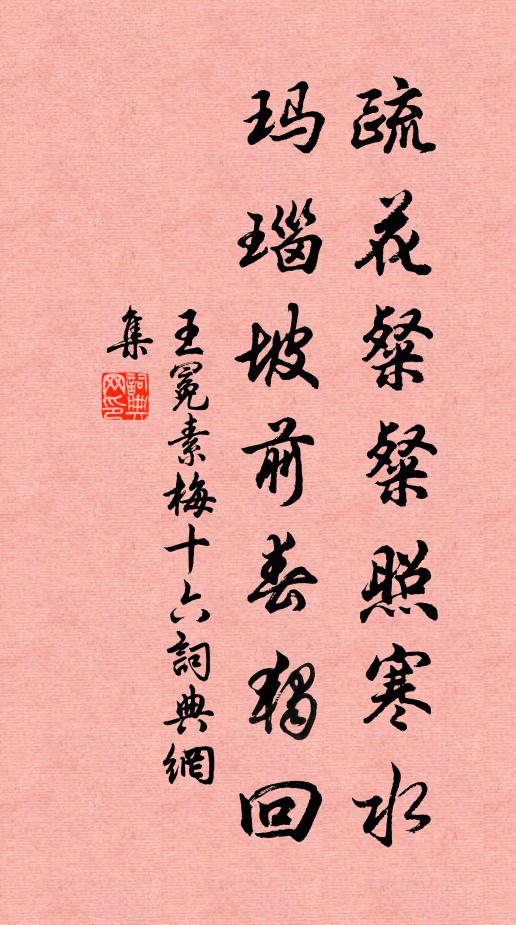 疏花粲粲照寒水
玛瑙坡前春独回
王冕素梅十六詞典網
集
詞典
网印